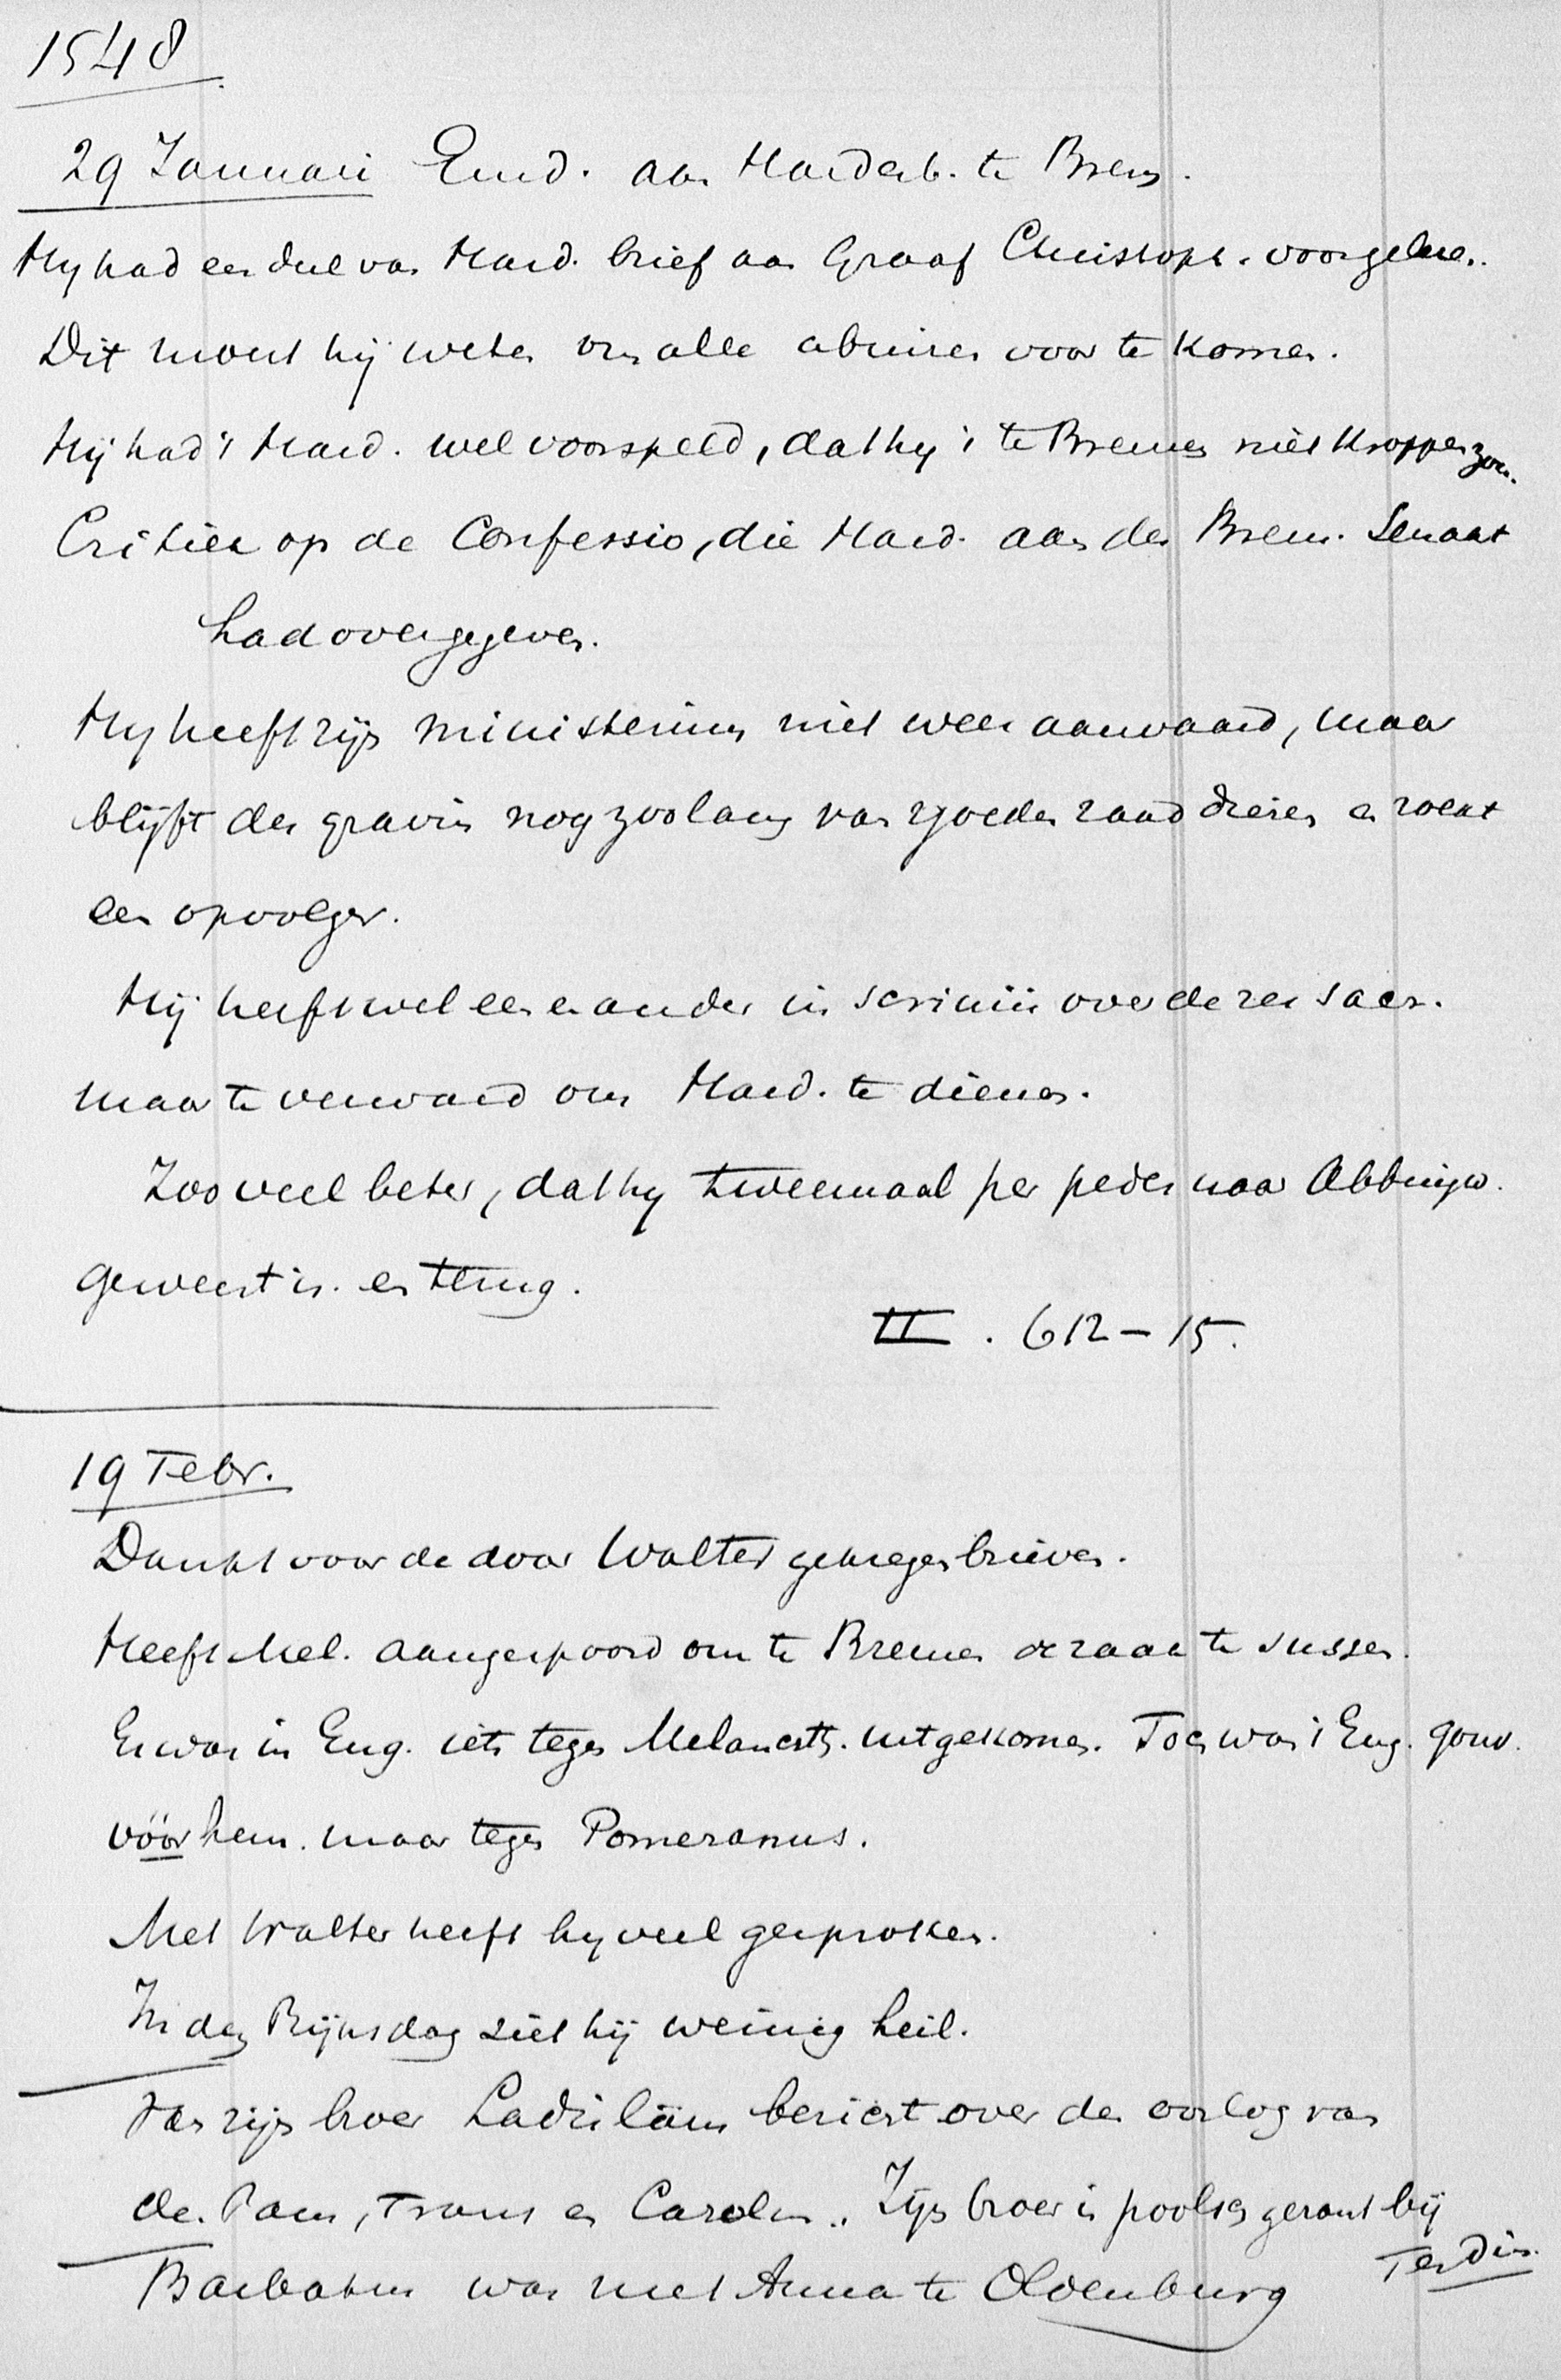 1548
29 Januari Emd. aan Hardenb. te Brem.
Hij had een deel van Hard. brief aan Graaf Christoph. voorgelez.
Dit moest hij weten om alle abuizen voor te komen.
Hij had 't Hard. wel voorspeld, dat hij 't te Bremen niet kroppen zou.
Critiek op de Confessio, die Hard. aan den Brem. Senaat
had overgegeven.
Hij heeft zijn ministerium niet weer aanvaard, maar
blijft der gravin nog zoolang van goeden raad dienen en zoekt
een opvolger.
Hij heeft wel een en ander in scriniis over de res sacr.
maar te verward om Hard. te dienen.
Zooveel beter, dat hij tweemaal per pedes naar Abbingw.
geweest is. en terug.
II. 612-15.
19 Febr.
Dankt voor de door Walter gekregen brieven.
Heeft Mel. aangespoord om te Bremen de zaak te sussen.
Er was in Eng. iets tegen Melancth. uitgekomen. Toen was 't Eng. gouv.
vóór hem. maar tegen Pomeranus.
Met Walter heeft hij veel gesproken.
In den Rijksdag ziet hij weinig heil.
Van zijn broer Ladislaus bericht over den oorlog van
de Paus, Frans en Carolus. Zijn broer is poolsch gezant bij
Ferdin.
Barbatus was met Anna te Oldenburg